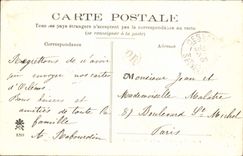 CARTE POSTALE
Tous les pays étrangers n'acceptent pas la correspondance au recto.
(se renseigner à la poste)
Correspondance
Adresse
OR
Regrettons de n'avoir
pu envoyer nos cartes
d'Orléans.
Bons baisers et
amitiés de toute la
famille.
A. Rabourdin
Monsieur Jean et
Mademoiselle Malatre
87 Boulevard St Michel
Paris